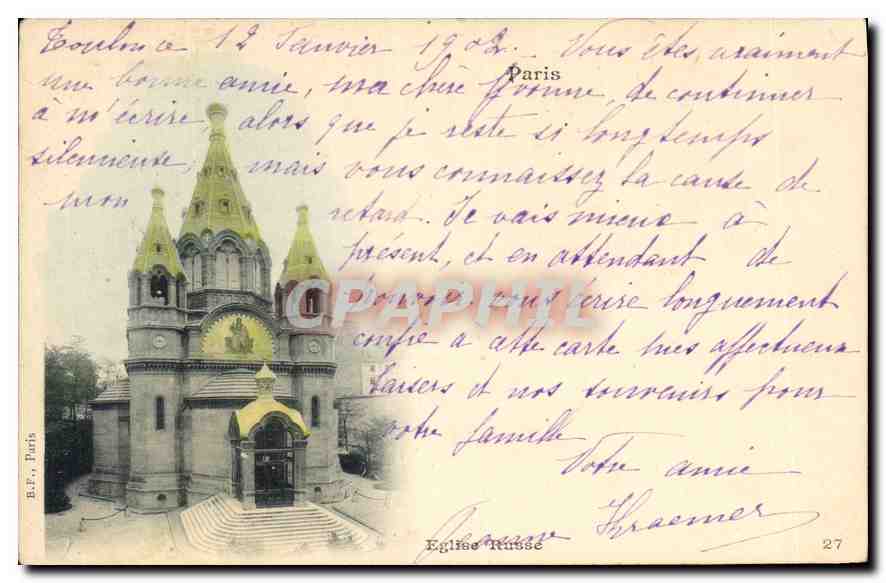 Toulouse 12 Janvier 1902. Vous êtes, vraiment
Paris
une bonne amie, ma chère Yvonne, de continuer
à m'écrire, alors que je reste si longtemps
silencieuse, mais vous connaissez la cause de
mon retard. Je vais mieux à
présent, et en attendant de
pouvoir vous écrire longuement
CPAPHIL
confie à cette carte mes affectueux
baisers et nos souvenirs pour
votre famille
Votre amie
Jeanne Kraemer
Eglise Russe
27
B.F., Paris